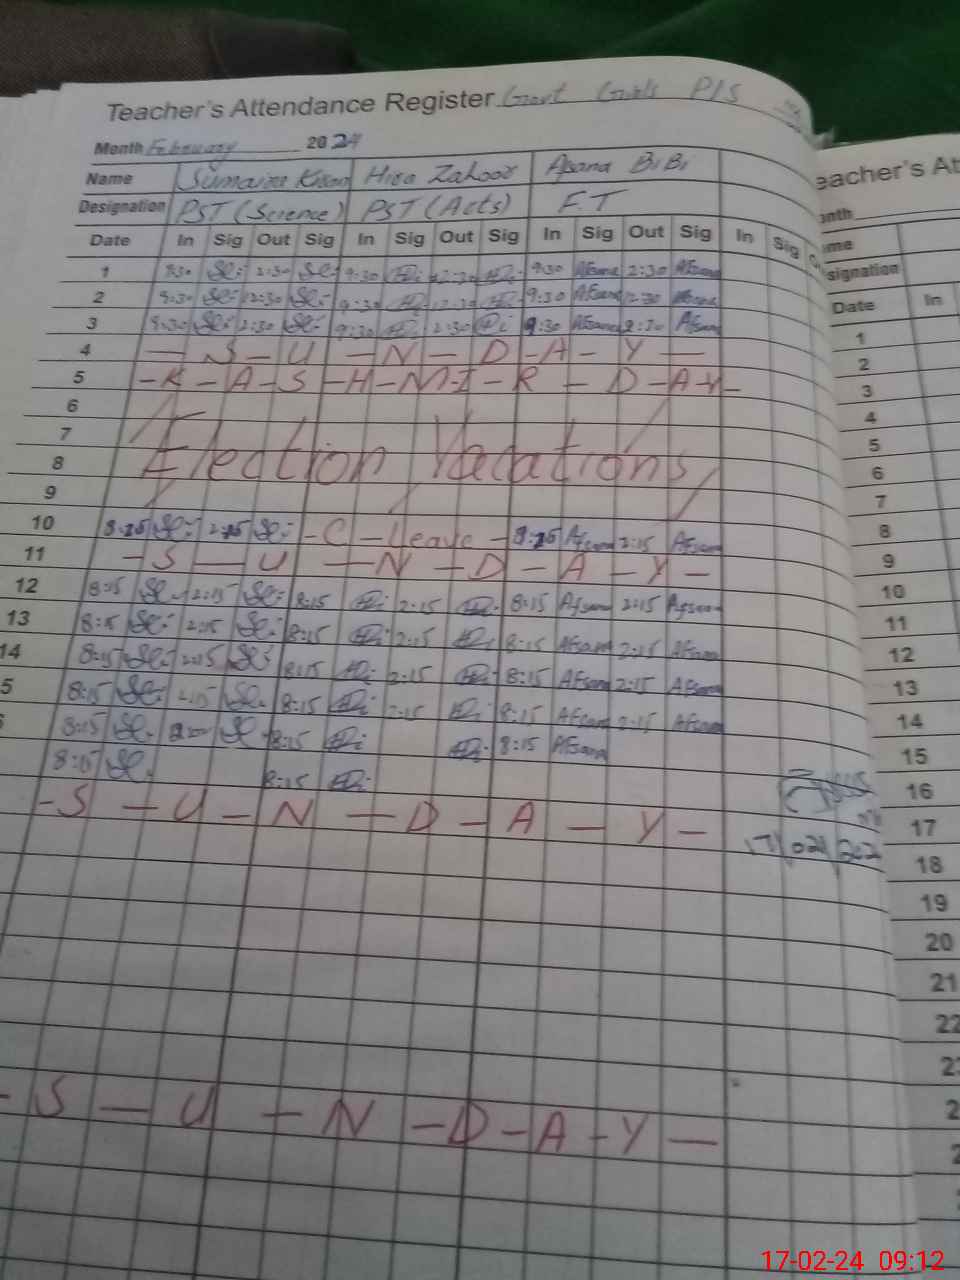 Teacher's Attendance Register Govt Girls P/S
Month February 2024
Name Sumaira Hira Zahoor Afsana BiBi
Designation PST (Science) PST (Arts) F.T
Date In Sig Out Sig In Sig Out Sig In Sig Out Sig In Sig
1 9:30 2:30 9:30 12:30 9:30 Afsana 2:30 Afsana
2 9:30 12:30 9:30 12:30 9:30 Afsana 12:30 Afsana
3 9:30 2:30 9:30 2:30 9:30 Afsana 2:30 Afsana
4 — S — U — N — D — A — Y —
5 - K - A - S - H - M - I - R - D - A - Y -
6
7
8 Election Vacations
9
10 8:15 2:15 - C - leave - 8:15 Afsana 2:15 Afsana
11 - S — U — N - D - A - Y -
12 8:15 2:15 8:15 2:15 8:15 Afsana 2:15 Afsana
13 8:15 2:15 8:15 2:15 8:15 Afsana 2:15 Afsana
14 8:15 2:15 8:15 2:15 8:15 Afsana 2:15 Afsana
5 8:15 2:15 8:15 2:15 8:15 Afsana 2:15 Afsana
8:15 8:15 8:15 Afsana
8:15 8:15
- S — U — N — D - A — Y -
- S — U — N — D - A - Y —
eacher's At
onth
me
signation
Date In
1
2
3
4
5
6
7
8
9
10
11
12
13
14
15
16
17
18
19
20
21
22
17-02-24 09:12